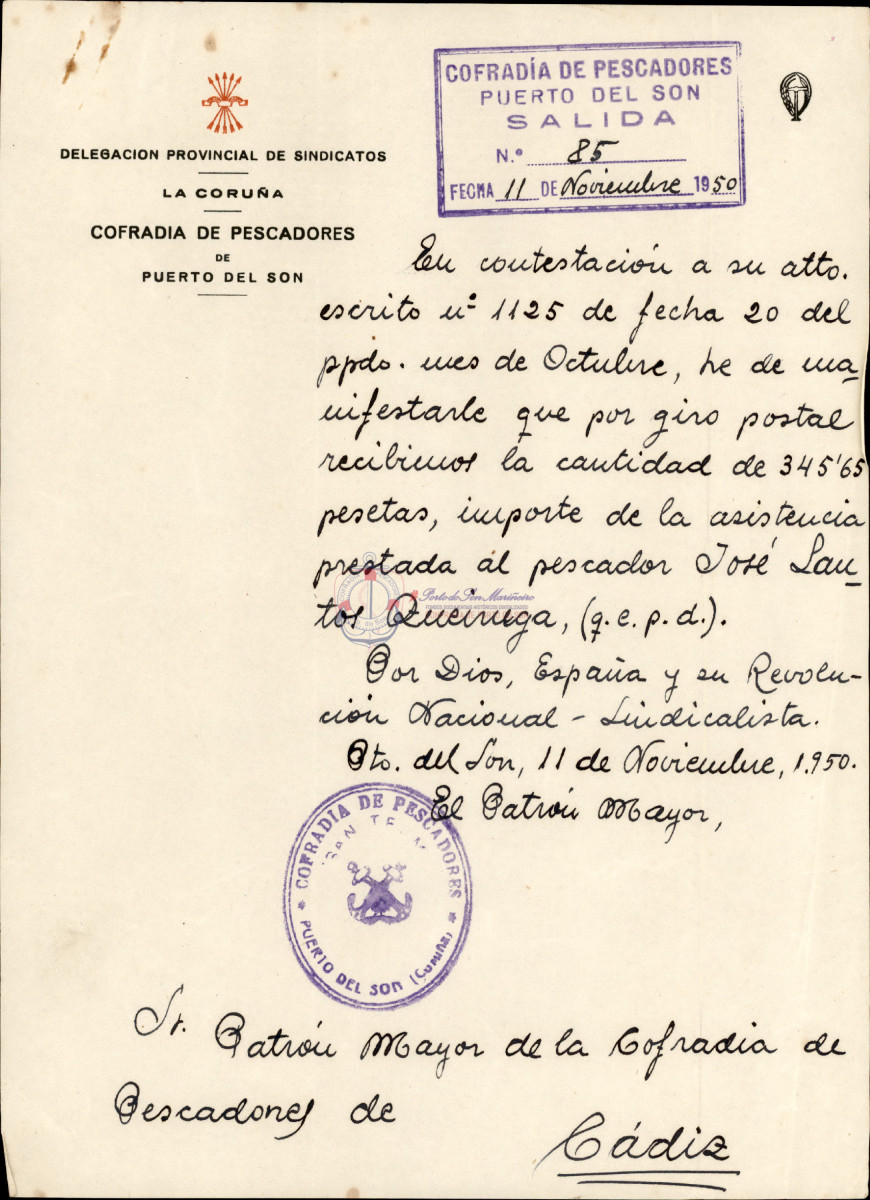 DELEGACION PROVINCIAL DE SINDICATOS
LA CORUÑA
COFRADIA DE PESCADORES
DE
PUERTO DEL SON
COFRADÍA DE PESCADORES
PUERTO DEL SON
SALIDA
N.º 85
FECHA 11 DE Noviembre 1950
En contestación a su atto.
escrito nº 1125 de fecha 20 del
ppdo. mes de Octubre, he de ma-
nifestarle que por giro postal
recibimos la cantidad de 345'65
pesetas, importe de la asistencia
prestada al pescador José San-
tos Queiruga, (q. e. p. d.).
Por Dios, España y su Revolu-
ción Nacional-Sindicalista.
Pto. del Son, 11 de Noviembre, 1.950.
El Patrón Mayor,
COFRADIA DE PESCADORES
SAN TELMO
* PUERTO DEL SON (Coruña) *
Porto do Son Mariñeiro
Sr. Patrón Mayor de la Cofradia de
Pescadores de
Cádiz